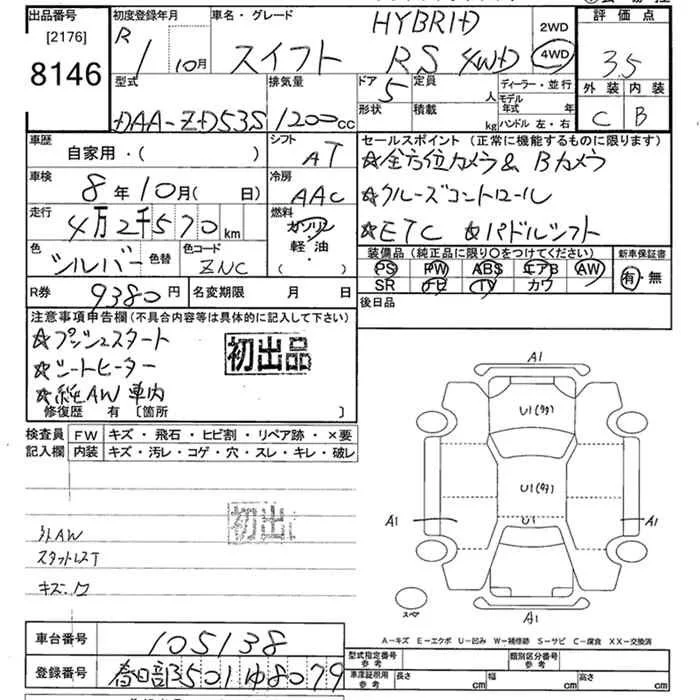 出品番号
[2176]
8146
初度登録年月
R 1 10月
車名・グレード
スイフト
HYBRID
RS 4WD
2WD
4WD
評価点
3.5
外装 内装
C B
型式
DAA-ZD53S
排気量
1200 cc
ドア 5
形状
定員 人
積載 kg
ディーラー・並行
モデル年式 年
ハンドル 左・右
車歴
自家用・( )
シフト
AT
セールスポイント (正常に機能するものに限ります)
☆全方位カメラ & Bカメラ
☆クルーズコントロール
☆ETC ☆パドルシフト
車検
8年10月( 日)
冷房
AAC
走行
4万2千570 km
燃料
ガソリン
軽・油
( )
色
シルバー
色替
色コード
ZNC
装備品 (純正品に限り○をつけてください)
PS PW ABS エアB AW
SR ナビ TV カワ
新車保証書
有・無
R券 9380円
名変期限 月 日
後日品
注意事項申告欄(不具合内容等は具体的に記入して下さい)
☆プッシュスタート
☆シートヒーター
☆純AW 車内
初出品
修復歴 有 [箇所 ]
検査員 FW キズ・飛石・ヒビ割・リペア跡・×要
記入欄 内装 キズ・汚レ・コゲ・穴・スレ・キレ・破レ
初出
外AW
スタットレスT
キズ・凹
A1
U1(タタ)
U1(タタ)
U1
A1
A1
A1
スペア
A-キズ E-エクボ U-凹み W-補修跡 S-サビ C-腐食 XX-交換済
車台番号
105138
登録番号
春日部 3501 ゆ 8079
型式指定番号
参考
類別区分番号
参考
車庫証明用
参考
長さ cm
幅 cm
高さ cm